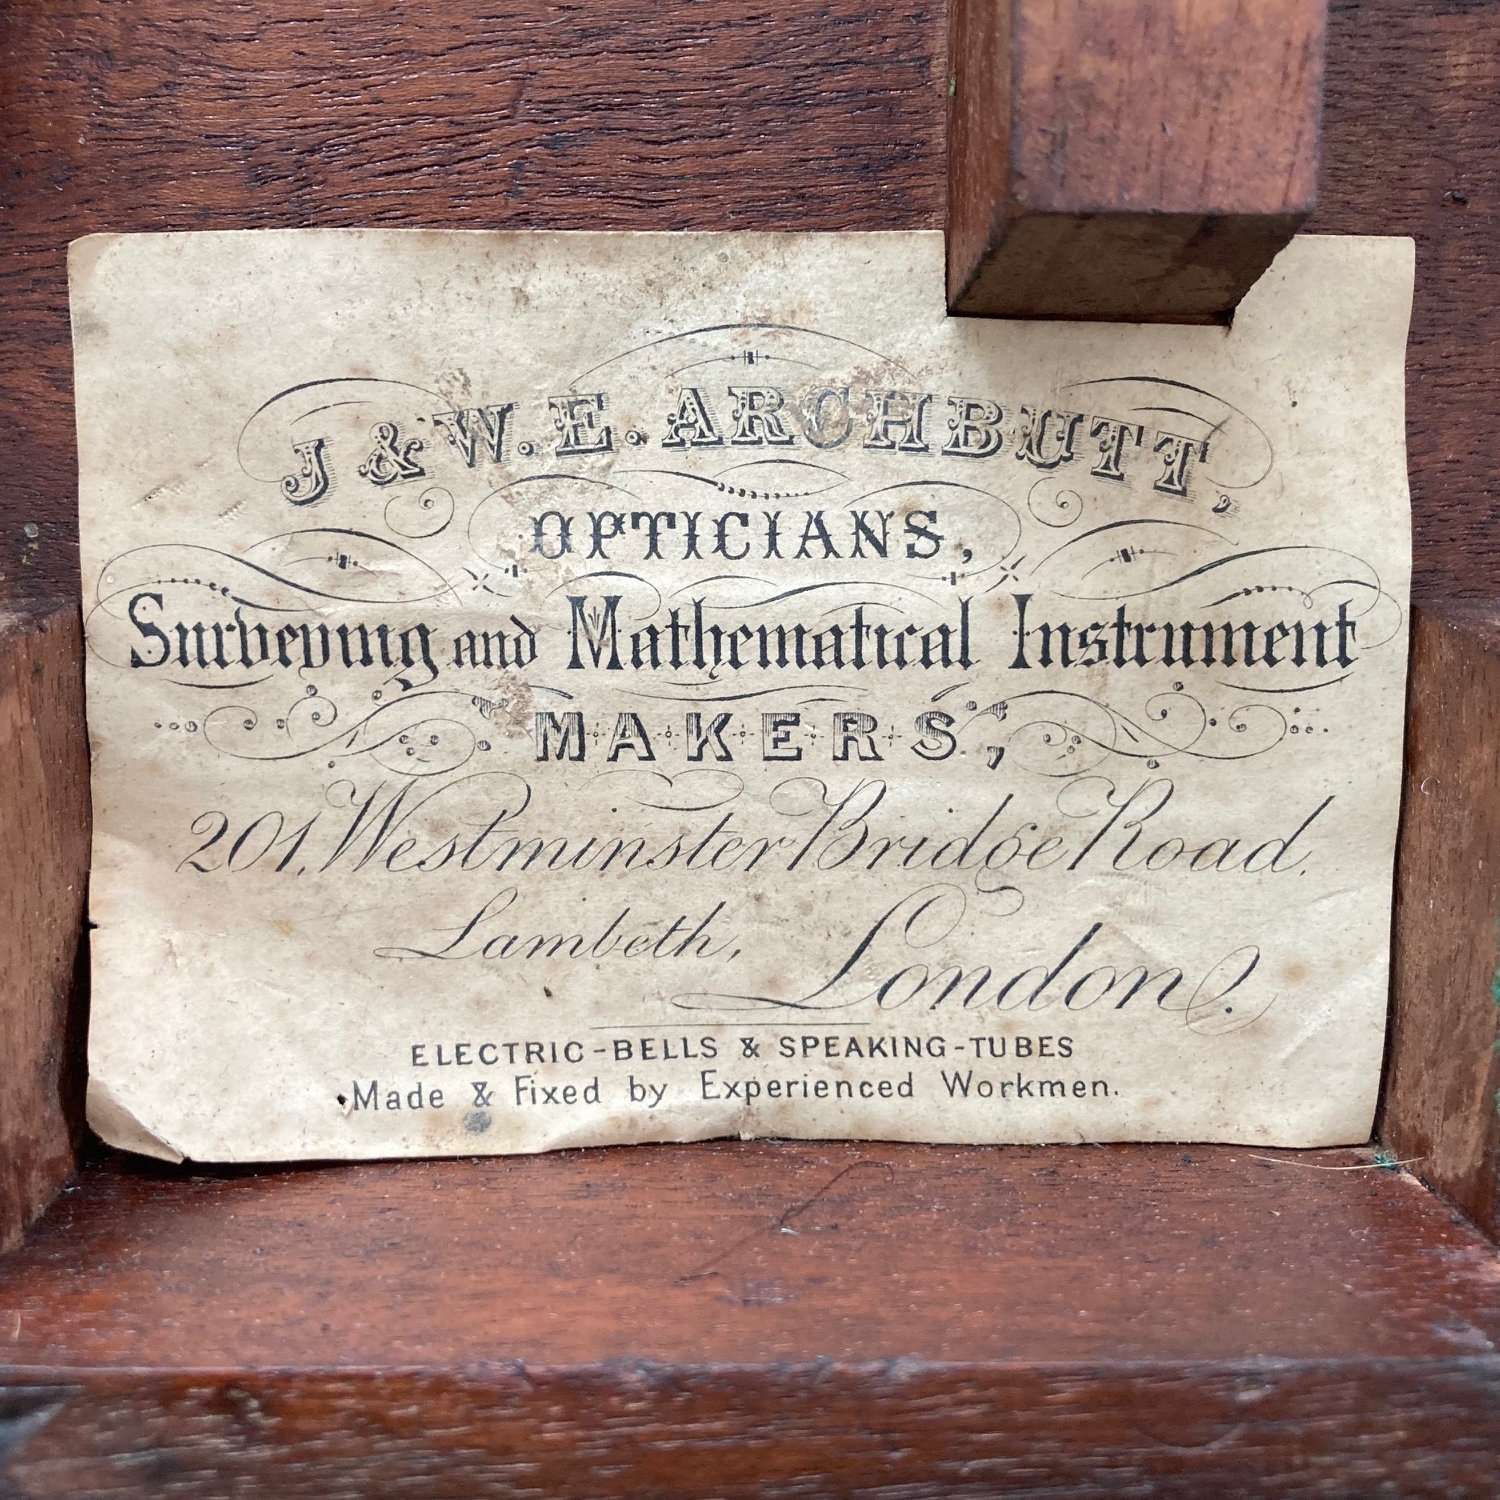 J & W. E. ARCHBUTT,
OPTICIANS,
Surveying and Mathematical Instrument
MAKERS,
201, Westminster Bridge Road.
Lambeth, London.
ELECTRIC-BELLS & SPEAKING-TUBES
Made & Fixed by Experienced Workmen.